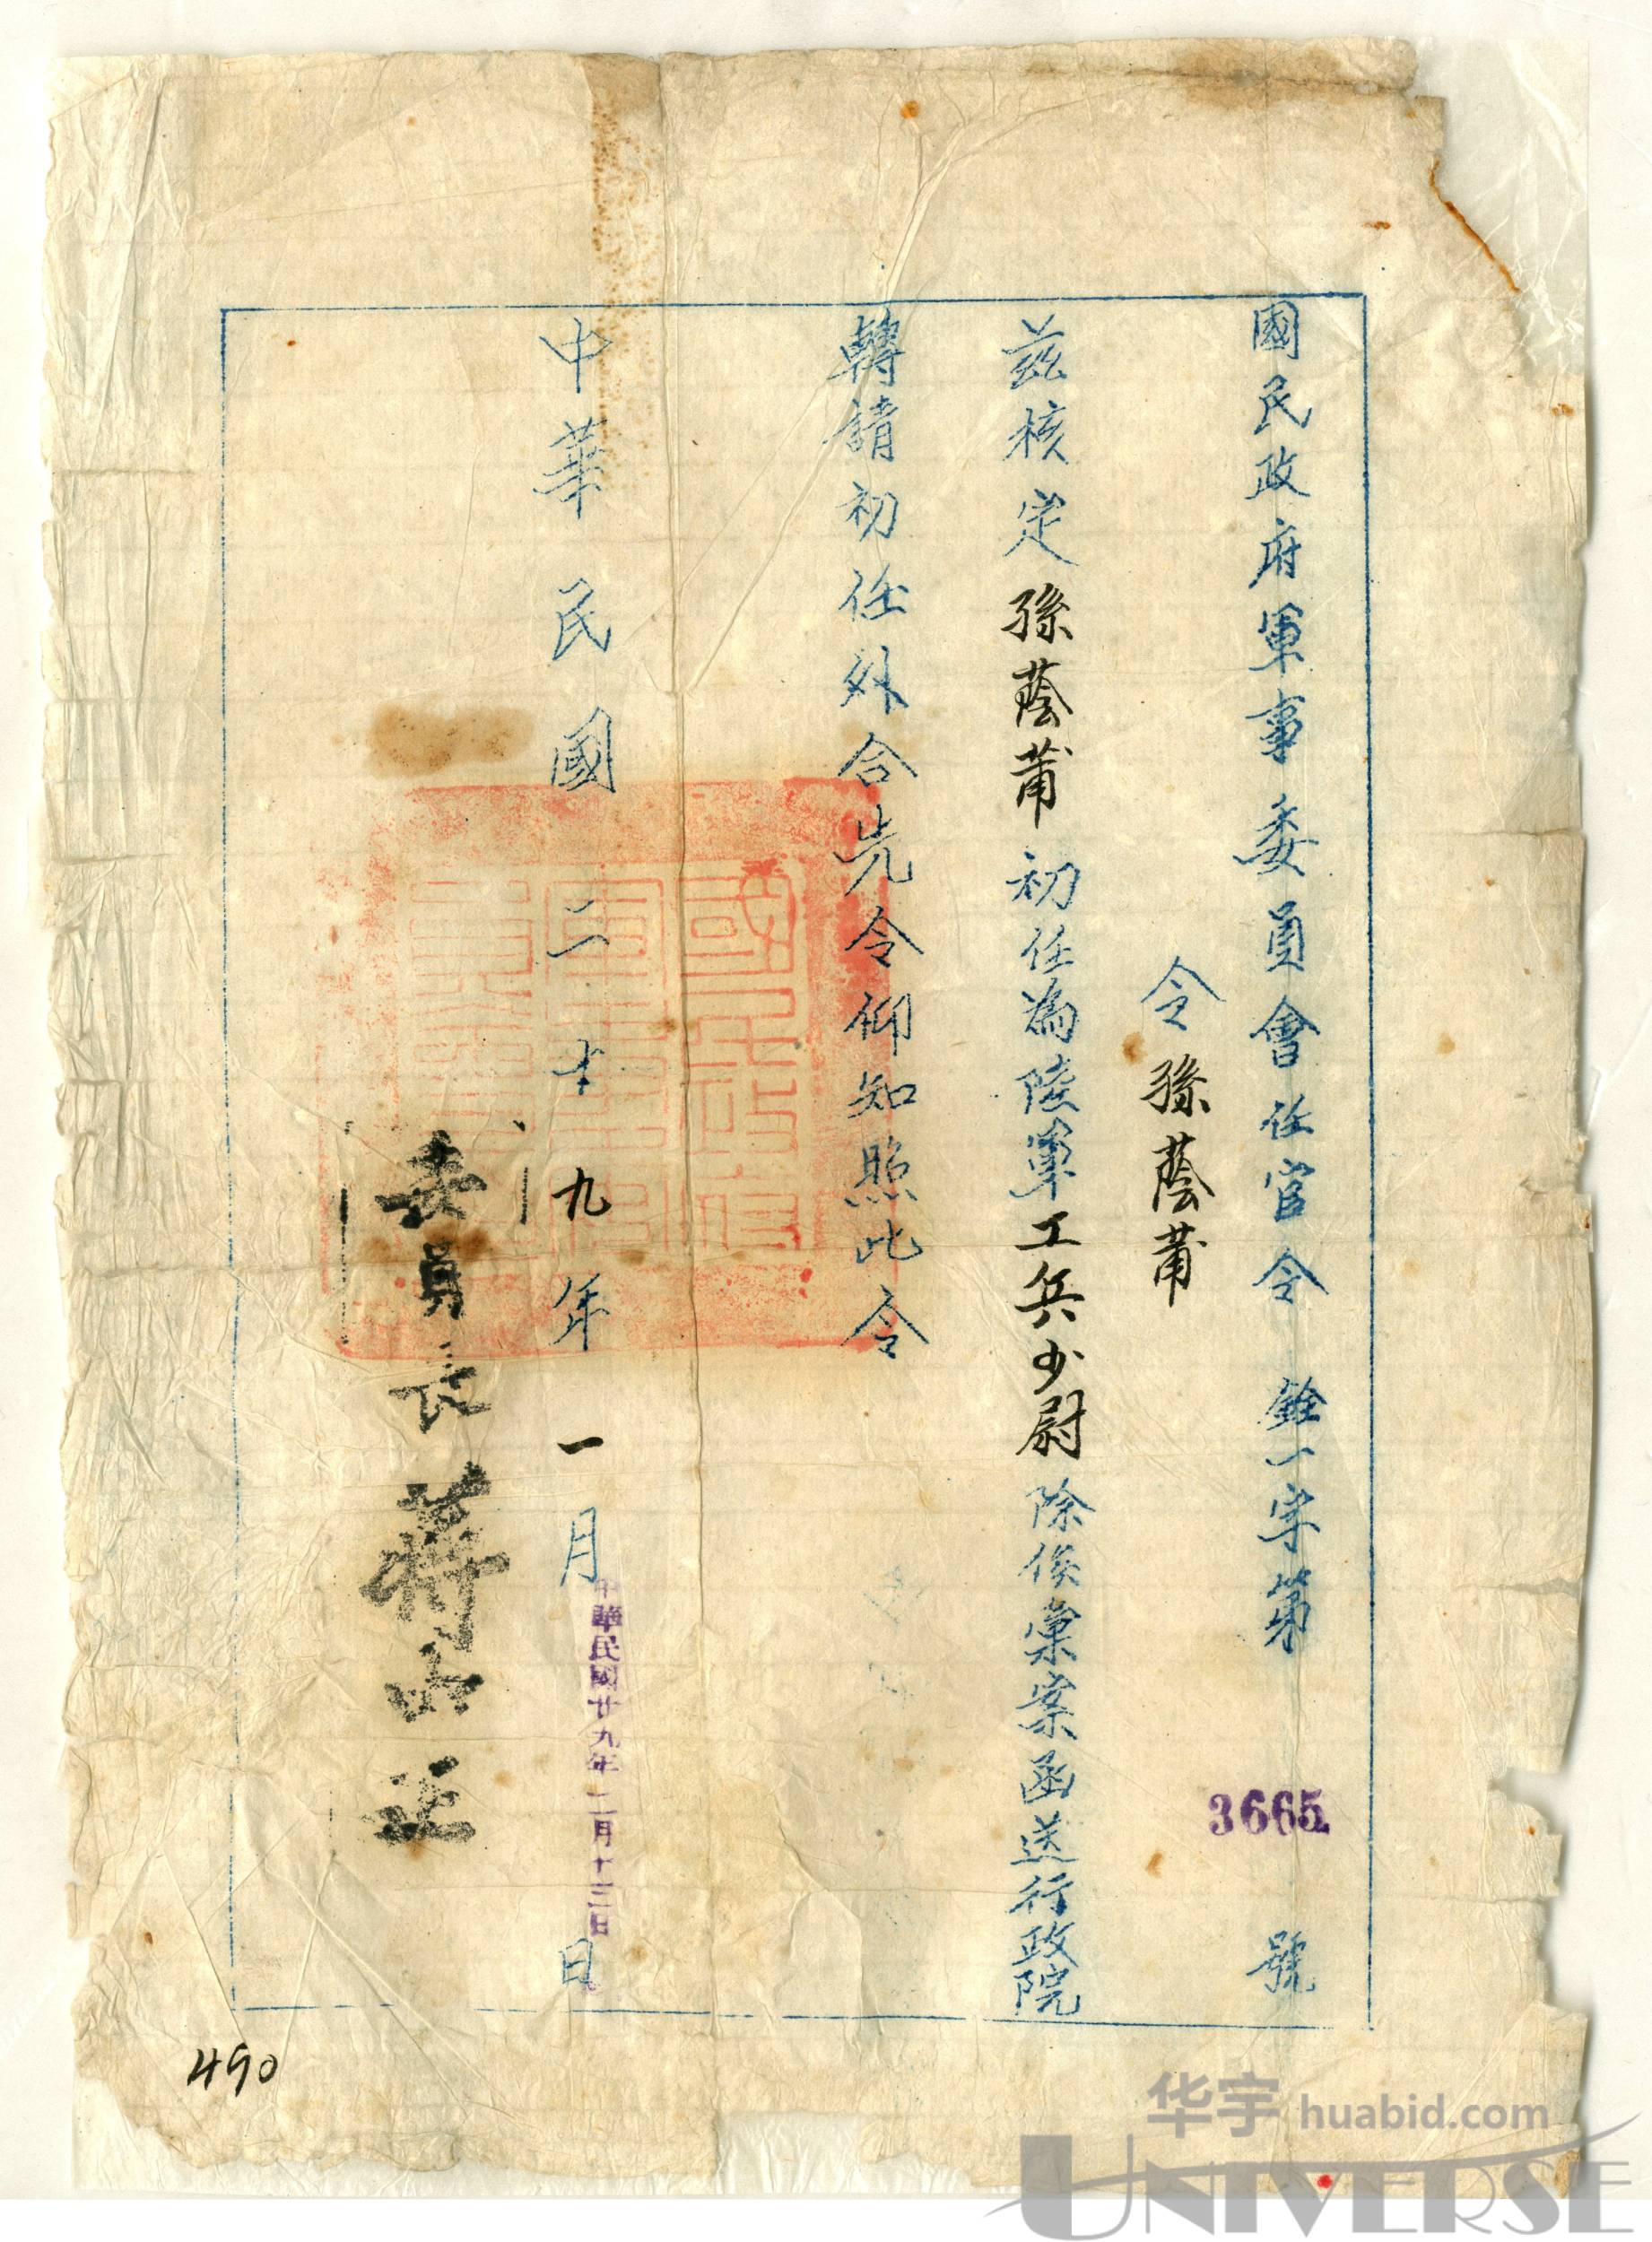 國民政府軍事委員會任官令 銓一字第3665號
令孫蔭莆
茲核定孫蔭莆初任為陸軍工兵少尉除俟彙案函送行政院
轉請初任外合先令仰知照此令
中華民國二十九年一月 日
中華民國廿九年二月十三日
委員長蔣中正
490
华宇 huabid.com
UNIVERSE